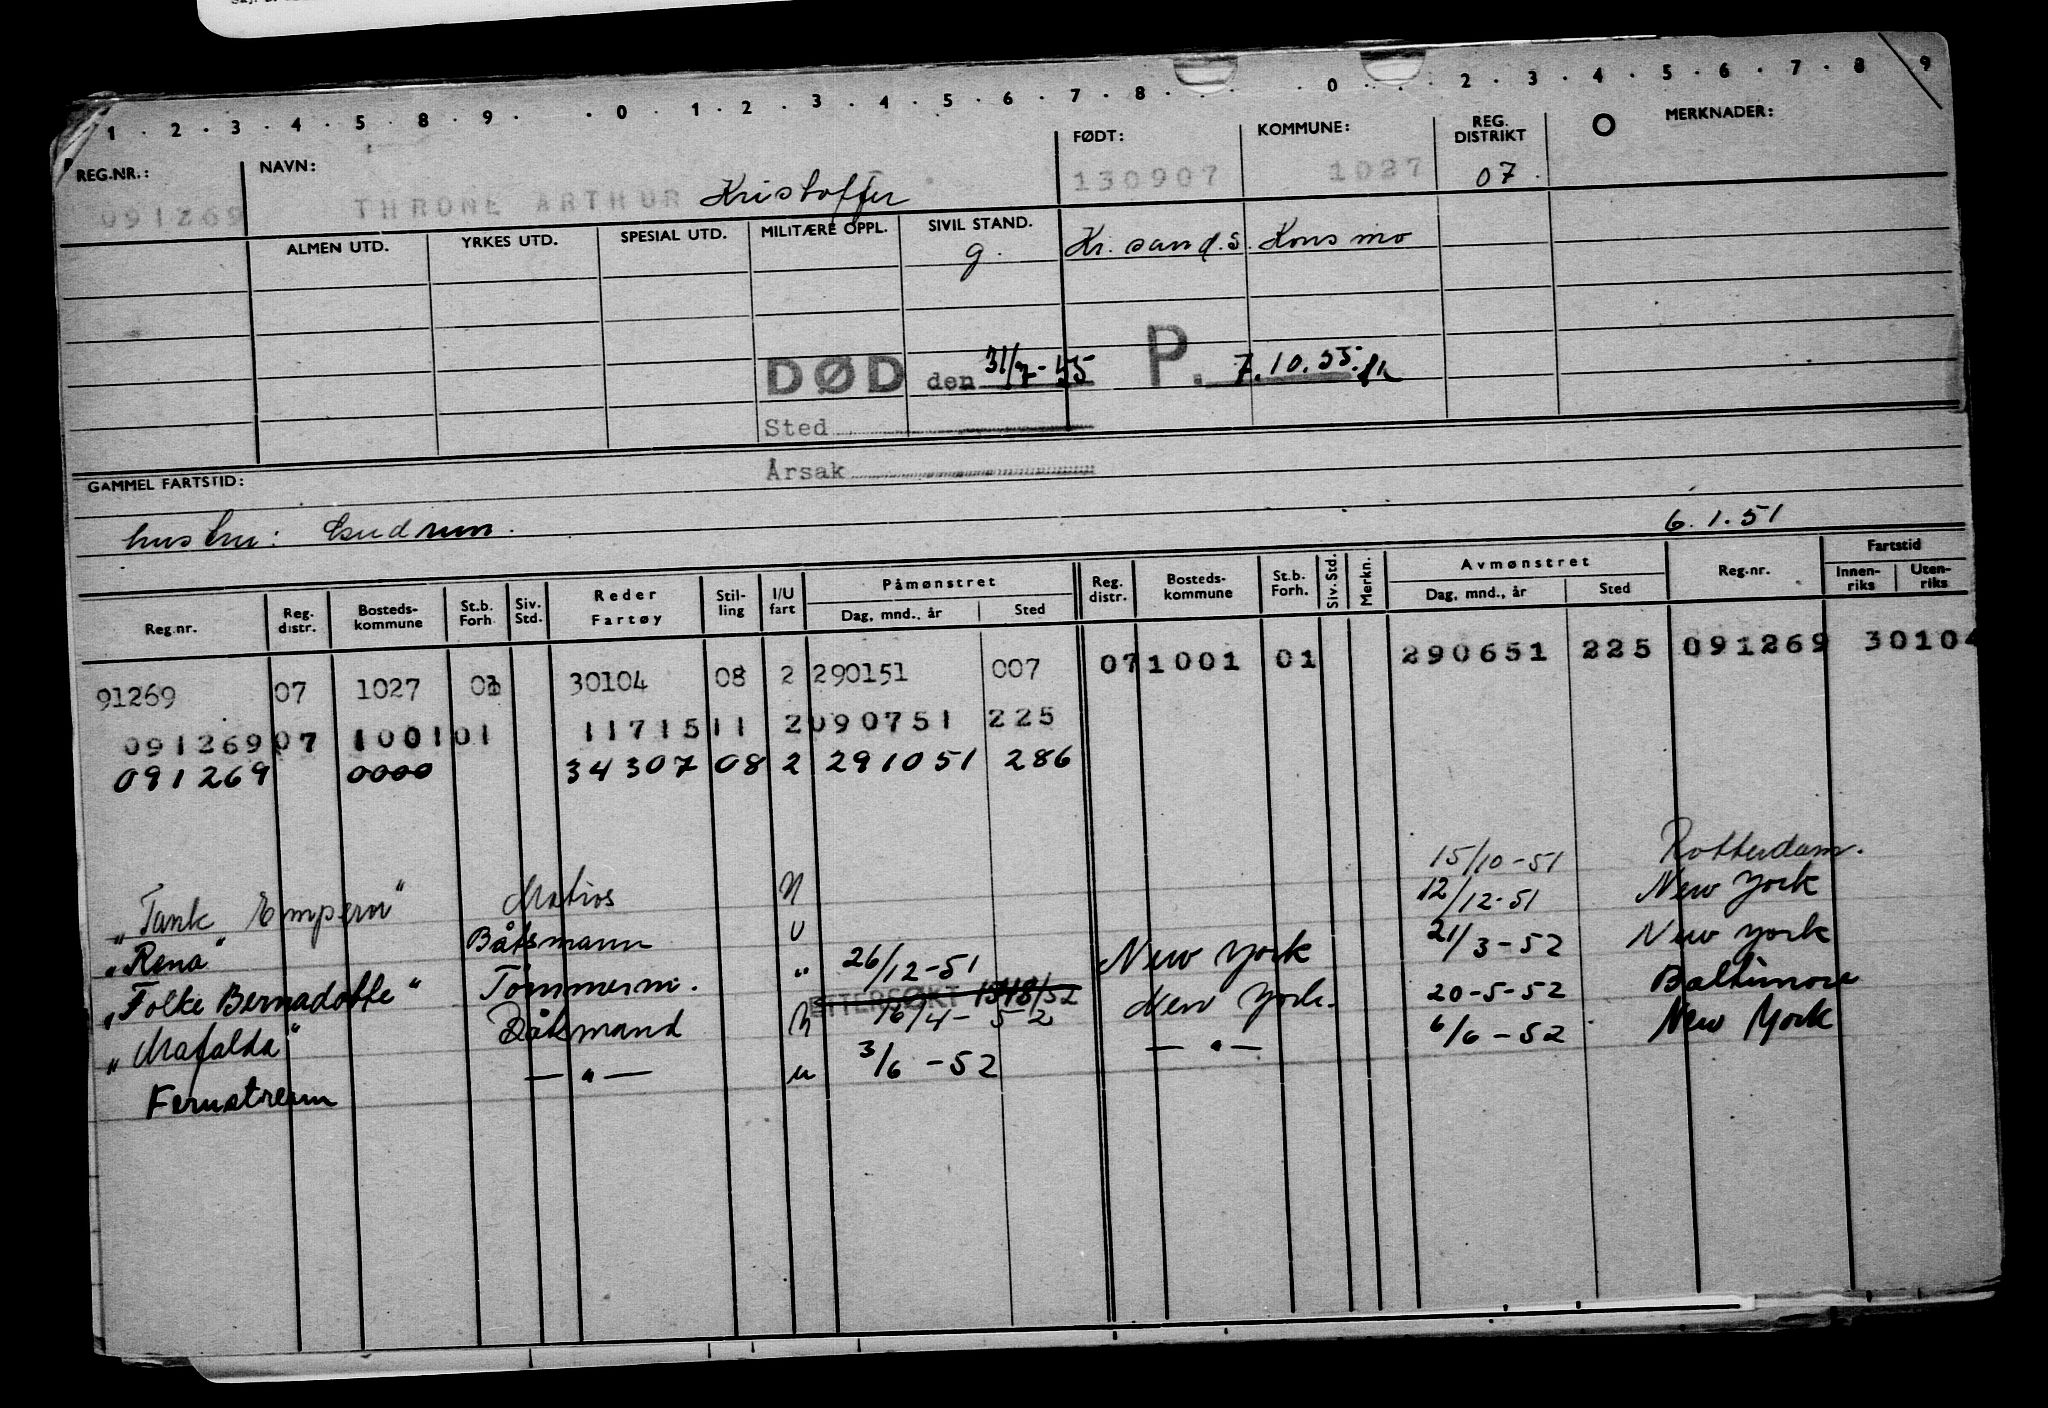 1 . 2 . 3 . 4 . 5 . 8 . 9 . . 0 . 1 . 2 . 3 . 4 . 5 . 6 . 7 . 8 . . . 0 . . 2 . 3 . 4 . 5 . 6 . 7 . 8 . 9
REG.NR.: NAVN: FØDT: KOMMUNE: REG. DISTRIKT O MERKNADER:
091269 THRONE ARTHUR Kristoffer 130907 1027 07
ALMEN UTD. YRKES UTD. SPESIAL UTD. MILITÆRE OPPL. SIVIL STAND.
g. Kr. sand.S. Konsmo
DØD den 31/7-55 P. 7.10.55.
Sted
Årsak
GAMMEL FARTSTID:
hustru: Gudrun. 6.1.51
Reg.nr. Reg. distr. Bosteds-kommune St.b. Forh. Siv. Std. Reder Fartøy Stil-ling I/U fart Påmønstret Dag, mnd., år Sted Reg. distr. Bosteds-kommune St.b. Forh. Siv. Std. Merkn. Avmønstret Dag, mnd., år Sted Reg.nr. Fartstid Innen-riks Uten-riks
91269 07 1027 01 30104 08 2 290151 007 07 1001 01 290651 225 091269 30104
091269 07 1001 01 11715 11 2 090751 225
091269 0000 34307 08 2 291051 286
„Tank Emperor" Matros U 15/10-51 Rotterdam.
„Rena" Båtsmann U 12/12-51 New York
„Folke Bernadotte" Tømmerm. " 26/12-51 New York 21/3-52 New York
ETTERSØKT
„Mafalda" Båtsmand 16/4-52 New York. 20-5-52 Baltimore
Fernstream — " — u 3/6-52 — " — 6/6-52 New York